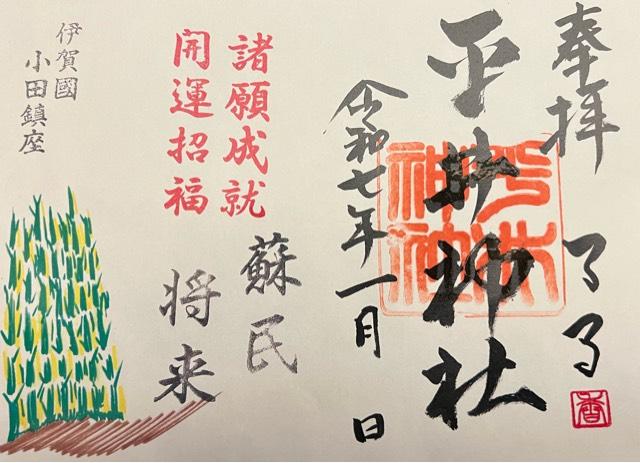 奉拝
平井神社
令和七年一月 日
諸願成就
開運招福
蘇民
将来
伊賀國
小田鎮座
平井神社
香